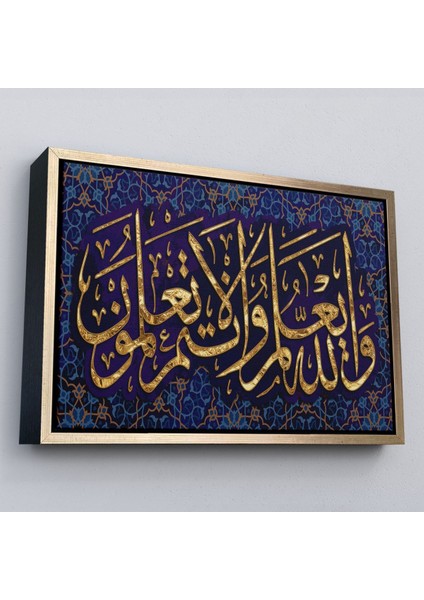 والله يعلم وأنتم لا تعلمون